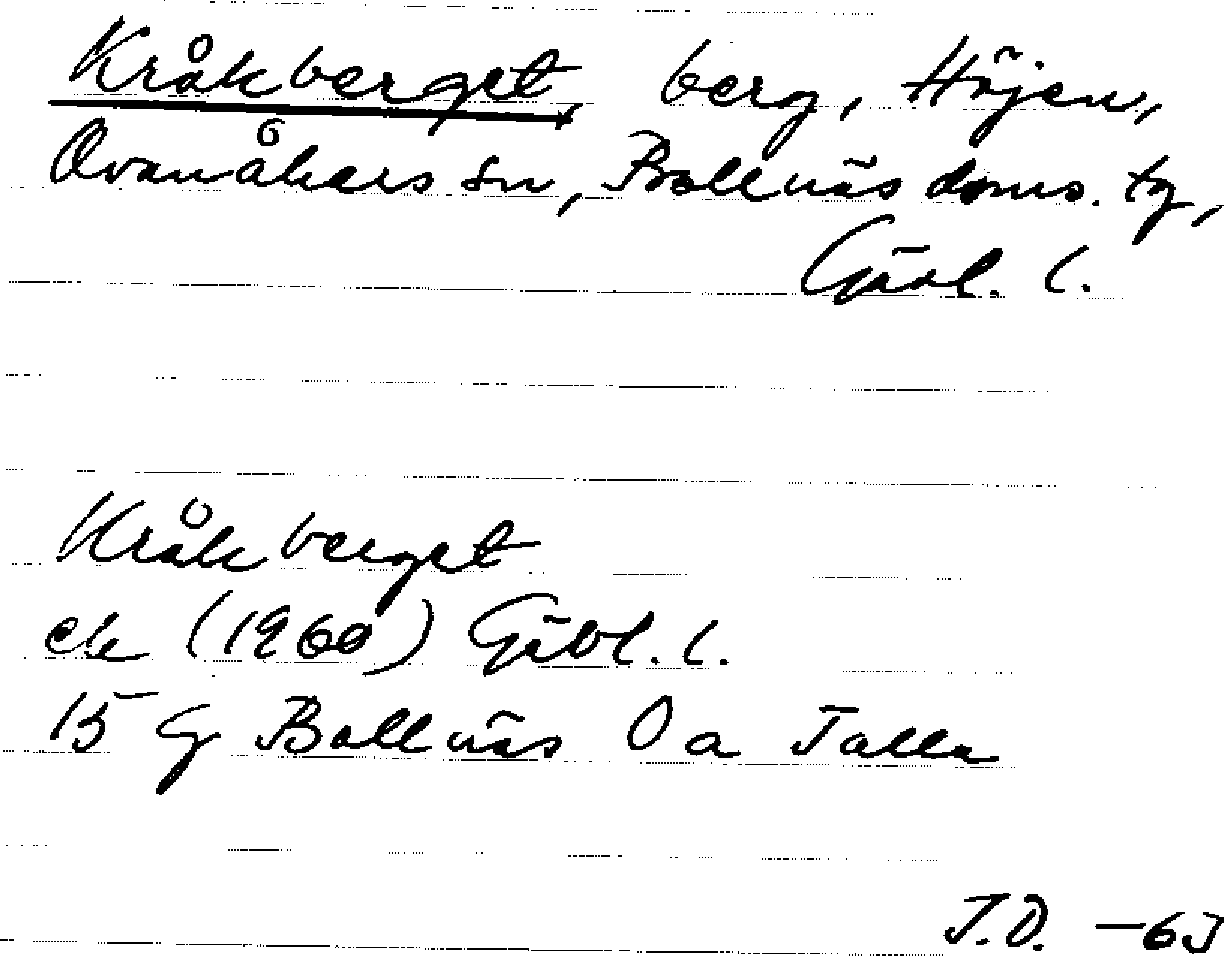 Kråkberget, berg, Höjen,
Ovanåkers sn, Bollnäs doms. tg,
Gävl. l.
Kråkberget
ek (1960) Gävl. l.
15 G Bollnäs Oa
J.D. -63